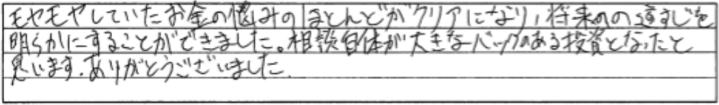 モヤモヤしていたお金の悩みのほとんどがクリアになり、将来のの道すじを
明らかにすることができました。相談自体が大きなバックのある投資となったと
思います。ありがとうございました。